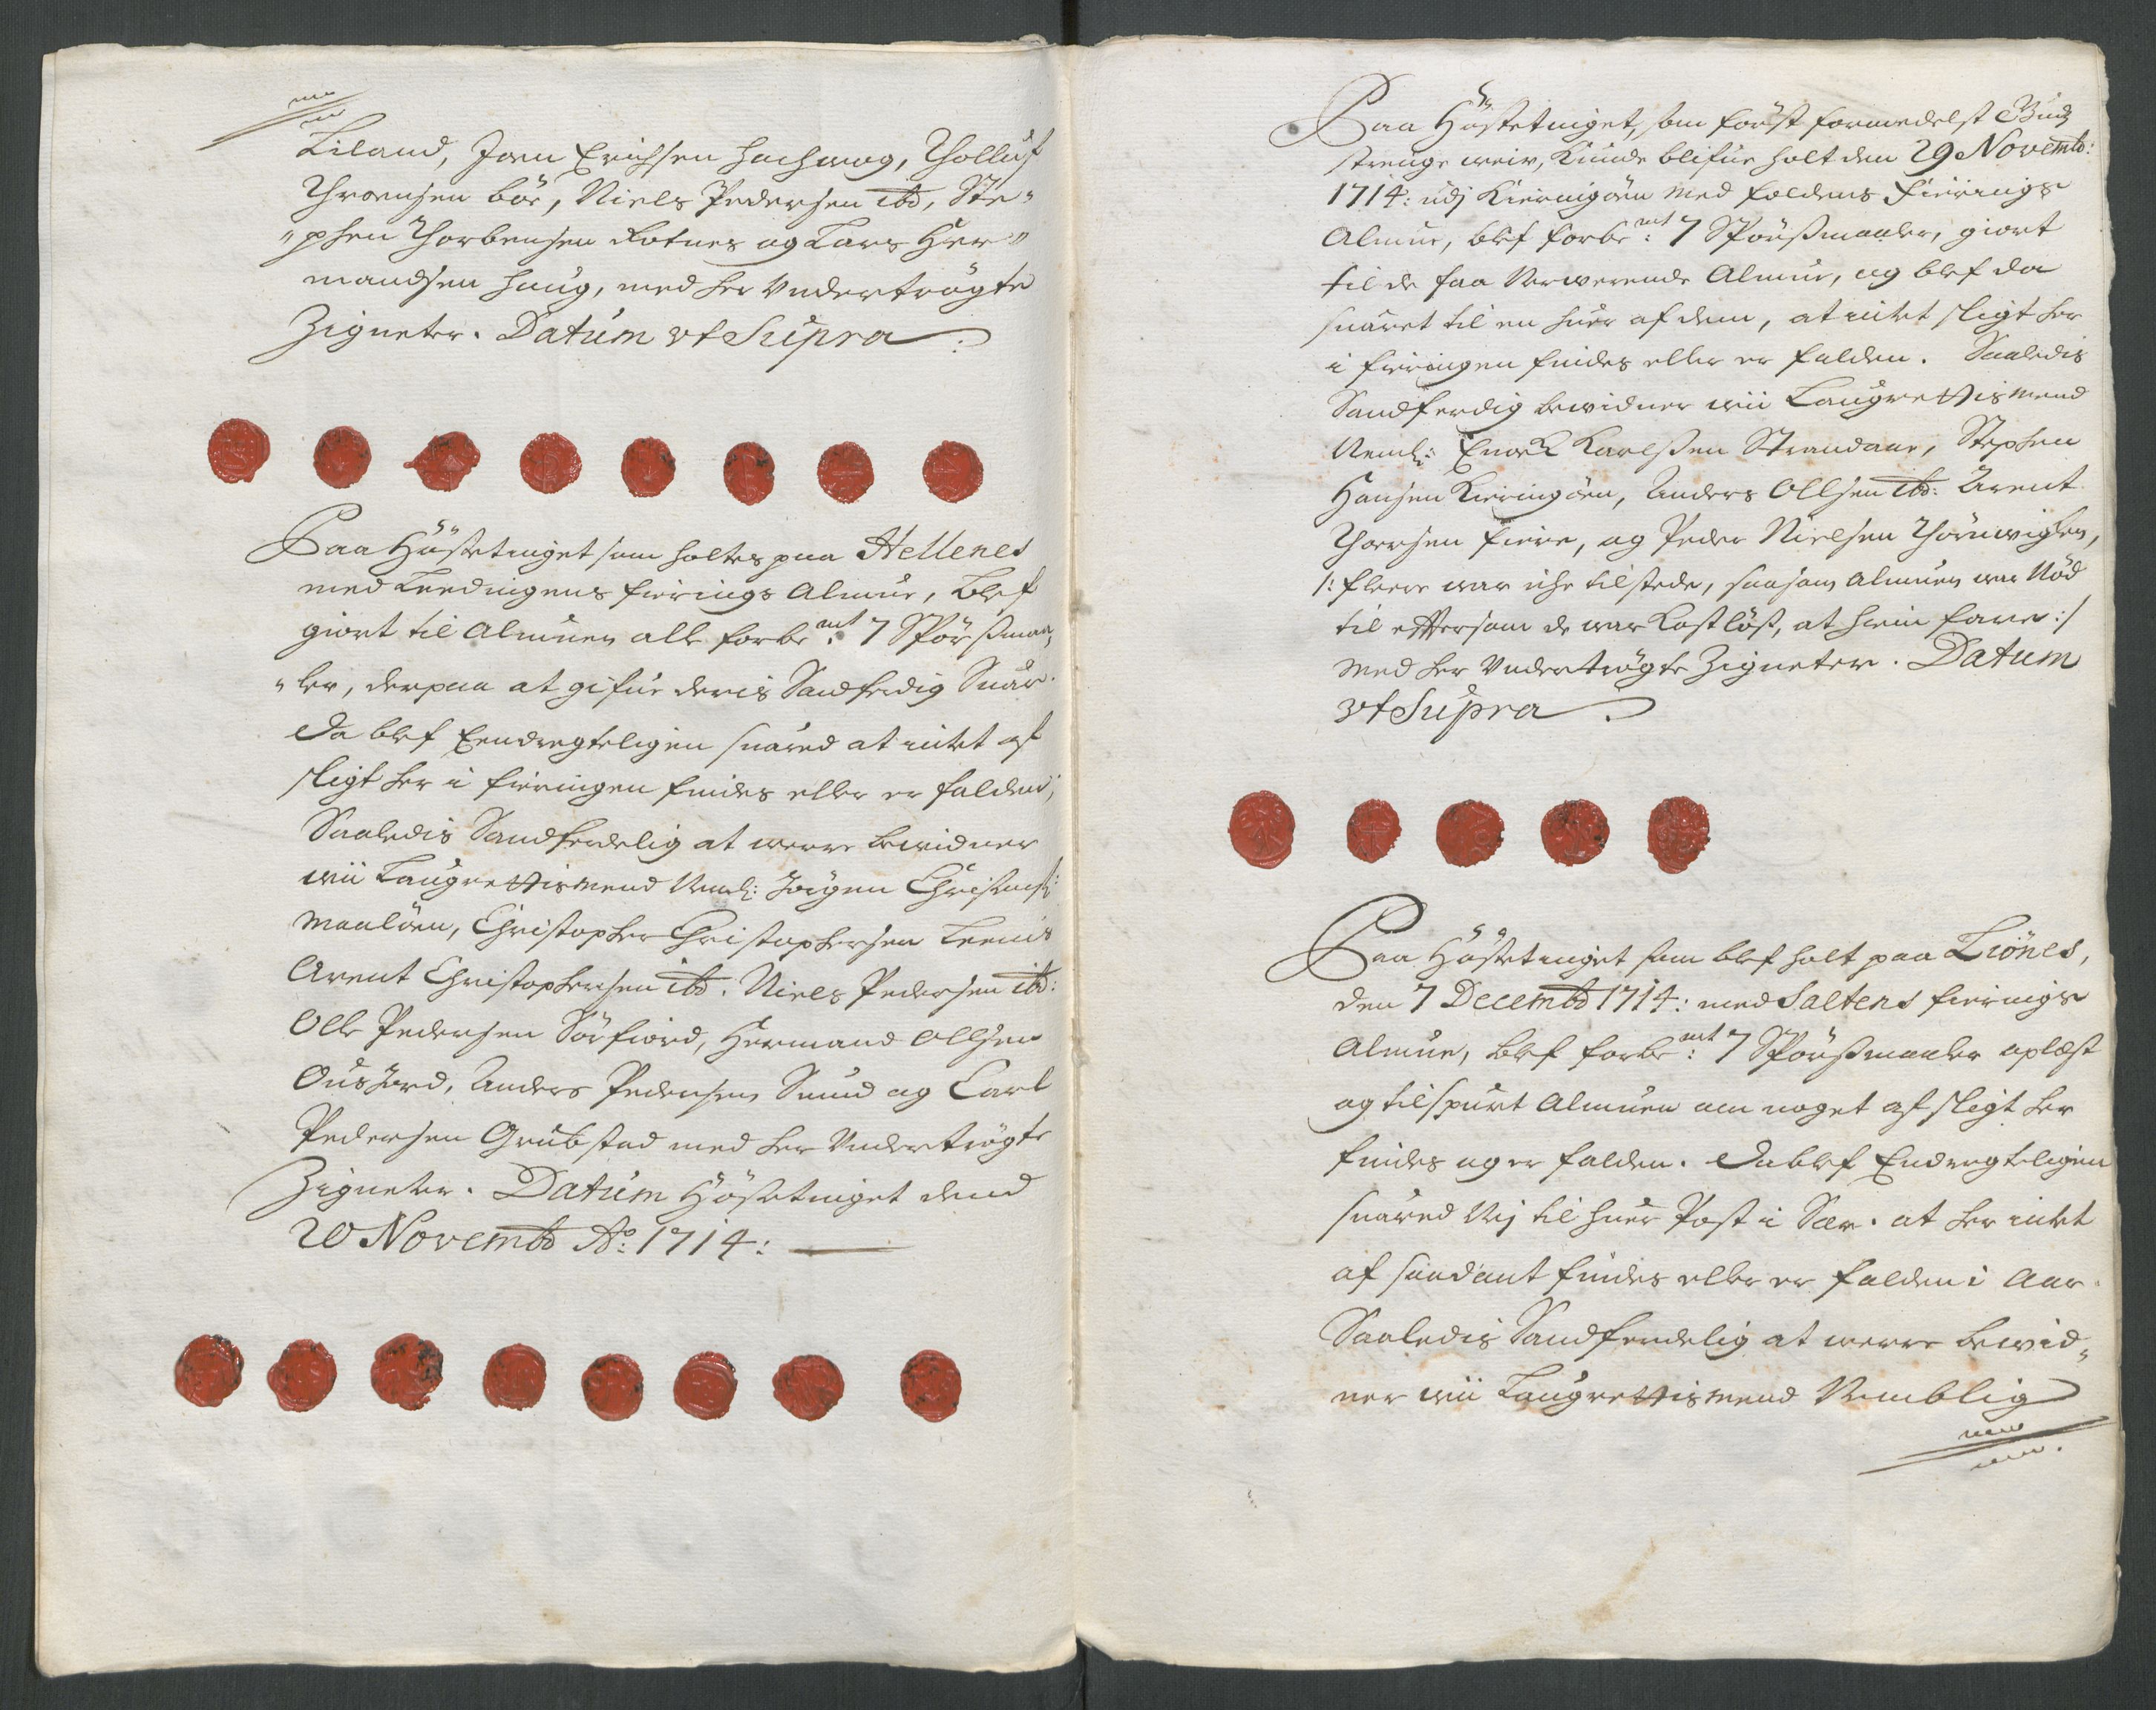 Liland, Joen Erichsen Hachwog, Tholluf
Throensen böe, Niels Pedersen ibd, Ste„
„phen Thorbensen Rotnes og Lars Her„
mandsen Haug, med her Undertrögte
Zigneter. Datum vt Supra:
Paa Höstetinget som holtes paa Hellenes
med Leedingens fierings Almue, blef
giort til Almuen alle forbemt: 7 Spörsmaa„
„ler, derpaa at gifue deris Sandferdig Suar.
Da blef Eendregteligen suared at intet af
sligt her i fieringen findes eller er falden,
Saaledis Sandferdelig at werre bewidner
wii Laugrettismend Neml: Jörgen Christens:
Maalöen, Christopher Christophersen Leenis
Arent Christophersen ibd. Niels Pedersen ibd:
Olle Pedersen Sörfiord, Hermand Ollsen
Ousjord, Anders Pedersen Sund og Carl
Pedersen Grubstad med her Undertrögte
Zigneter. Datum Höstetinget dend
20 Novembd Ao: 1714:
Paa Höstetinget, som först formedelst Gudz
strenge weir, Kunde blifue holt den 29 Novembd:
1714: udj Kieringöen med foldens Fierings
Almue, blef forbemt: 7 Spörsmaaler, giort
til de faa Nerwerende Almue, og blef da
suaret til en huer af dem, at intet sligt her
i fieringen findes eller er falden. Saaledis
Sandferdig bewidner wii Laugrettismend
Neml: Enoch Karlsen Strandaae, Stephen
Hansen Kieringöen, Anders Ollsen ibd: Arent
Thorsen fiere, og Peder Nielsen Thörnwigen,
/: fleere war iche tilstede, saasom Almuen war Nöd
til effersom de war Kostlöst, at hiem fare :/
med her Undertrögte Zigneter. Datum
vt Supra
Paa Höstetinget som blef holt paa Liönes,
den 7 Decembd 1714: med Saltens fierings
Almue, blef forbemt: 7 Spörsmaaler oplæst
og tilspurt Almuen om noget af sligt her
findes og er falden. Da blef Endregteligen
suared Nej til huer Post i Sær. at her intet
af saadant findes eller er falden i Aar.
Saaledis Sandferdelig at werre bewid„
ner wii Laugrettismend Nemblig